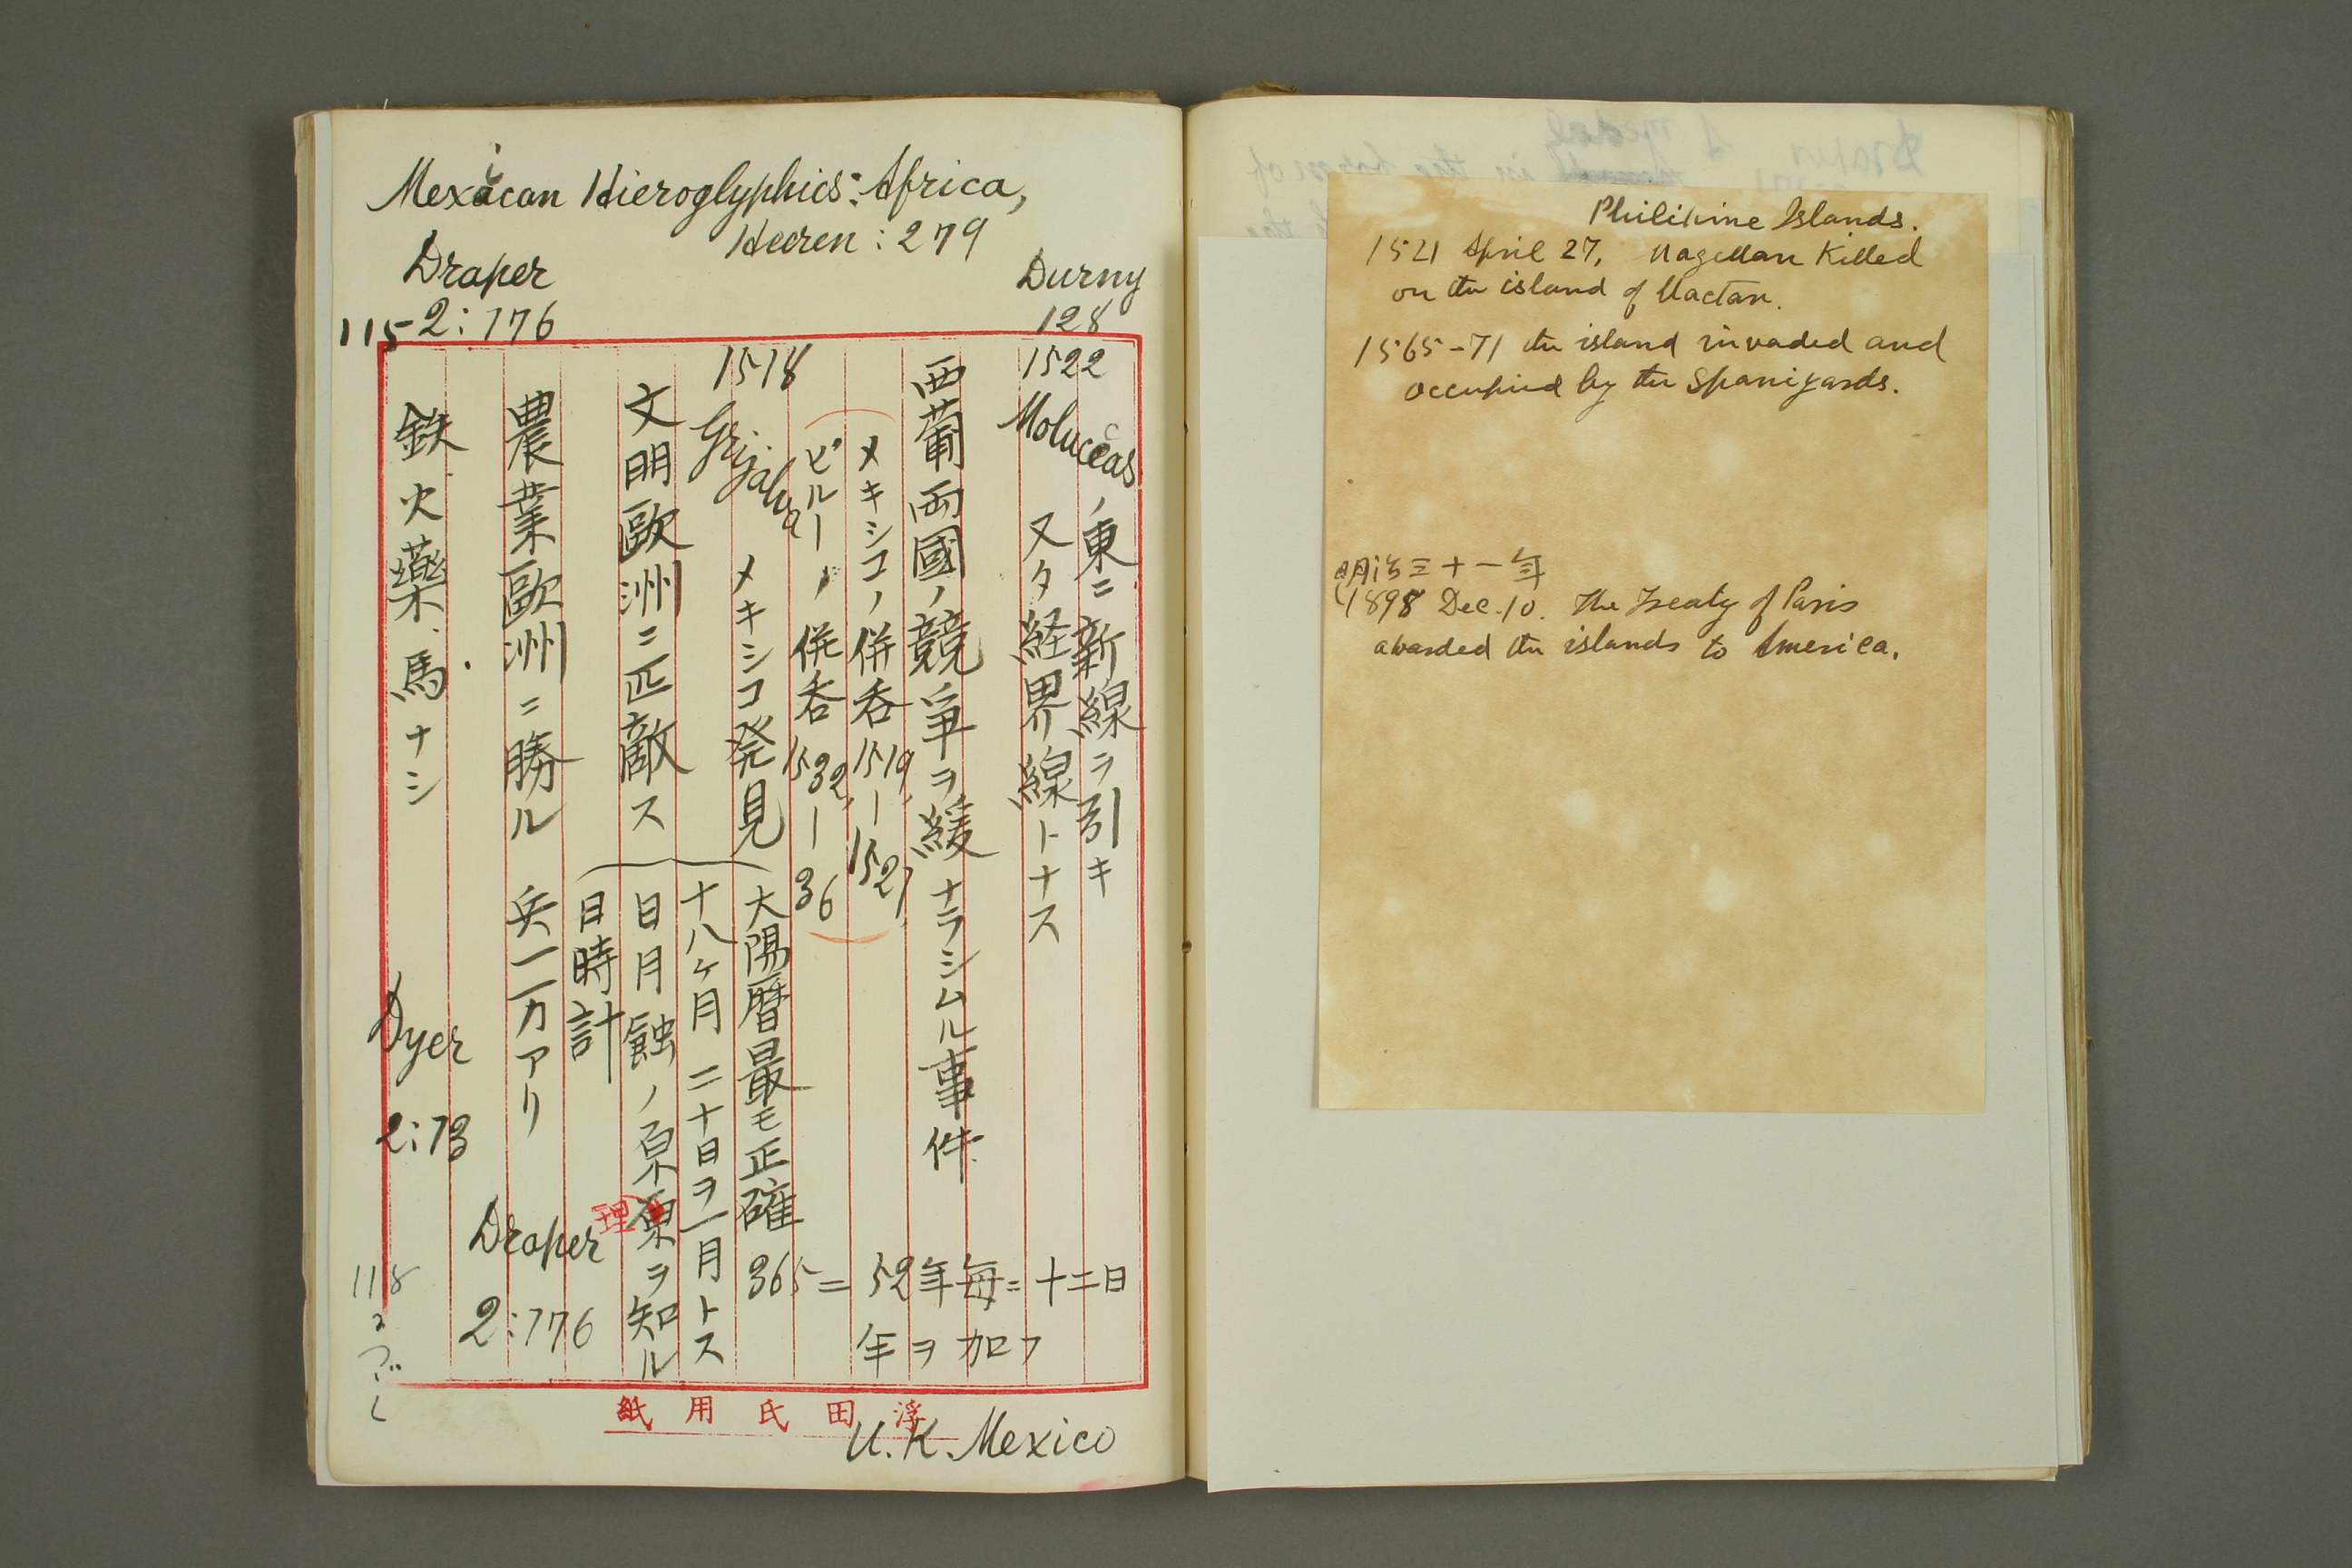 Mexican Hieroglyphics: Africa,
Heeren: 279
Draper
2:176
115
Durny
128
1522
Moluccasノ東ニ新線ヲ引キ
又タ経界線トナス
西葡両國ノ競争ヲ緩ナラシムル事件
メキシコノ併呑1519,—1521,
ピルーノ併呑1532,—36
1518
Grijalva メキシコ発見
大陽暦最モ正確
365=52年毎=十二日
年ヲ加フ
十八ヶ月二十日ヲ一月トス
文明歐洲ニ匹敵ス
日月蝕ノ原理ヲ知ル
日時計
農業歐洲ニ勝ル 兵一二カアリ
Draper
2:176
鉄.火藥.馬.ナシ
Dyer
2:73
118
つゞく
浮田氏用紙
U.K. Mexico
Philipine Islands.
1521 April 27, Magellan Killed
on the island of Mactan.
1565-71 the island invaded and
occupied by the Spaniyards.
明治三十一年
(1898 Dec. 10. The Treaty of Paris
awarded the islands to America.